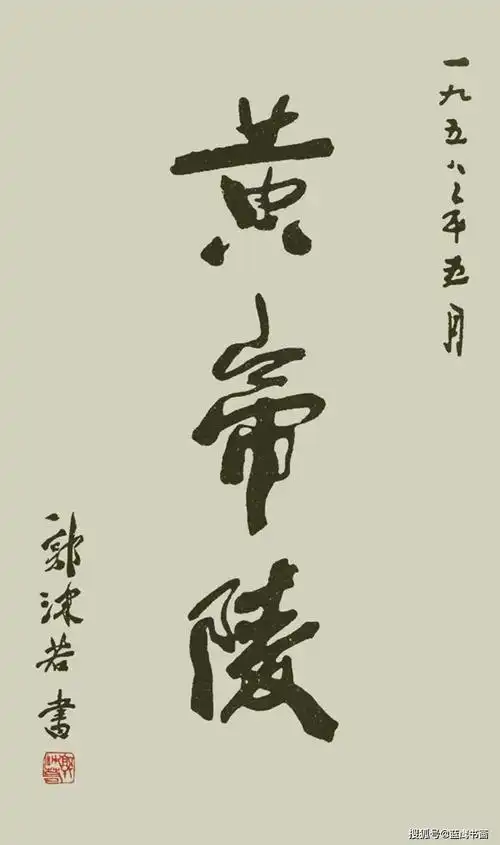 一九五八年五月
黄帝陵
郭沫若书
搜狐号@蓝海书画